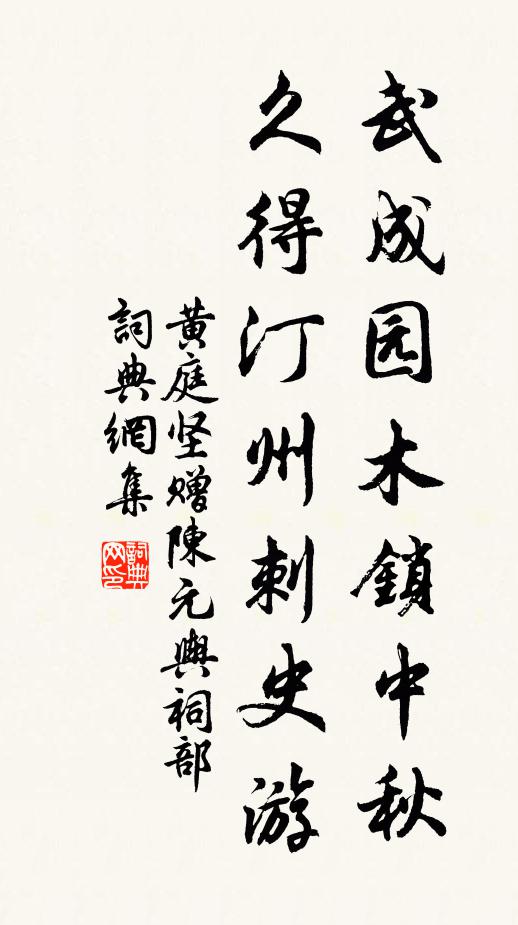 武成园木鎖中秋
久得汀州刺史游
黄庭坚赠陳元輿祠部
詞典網集
詞典网印